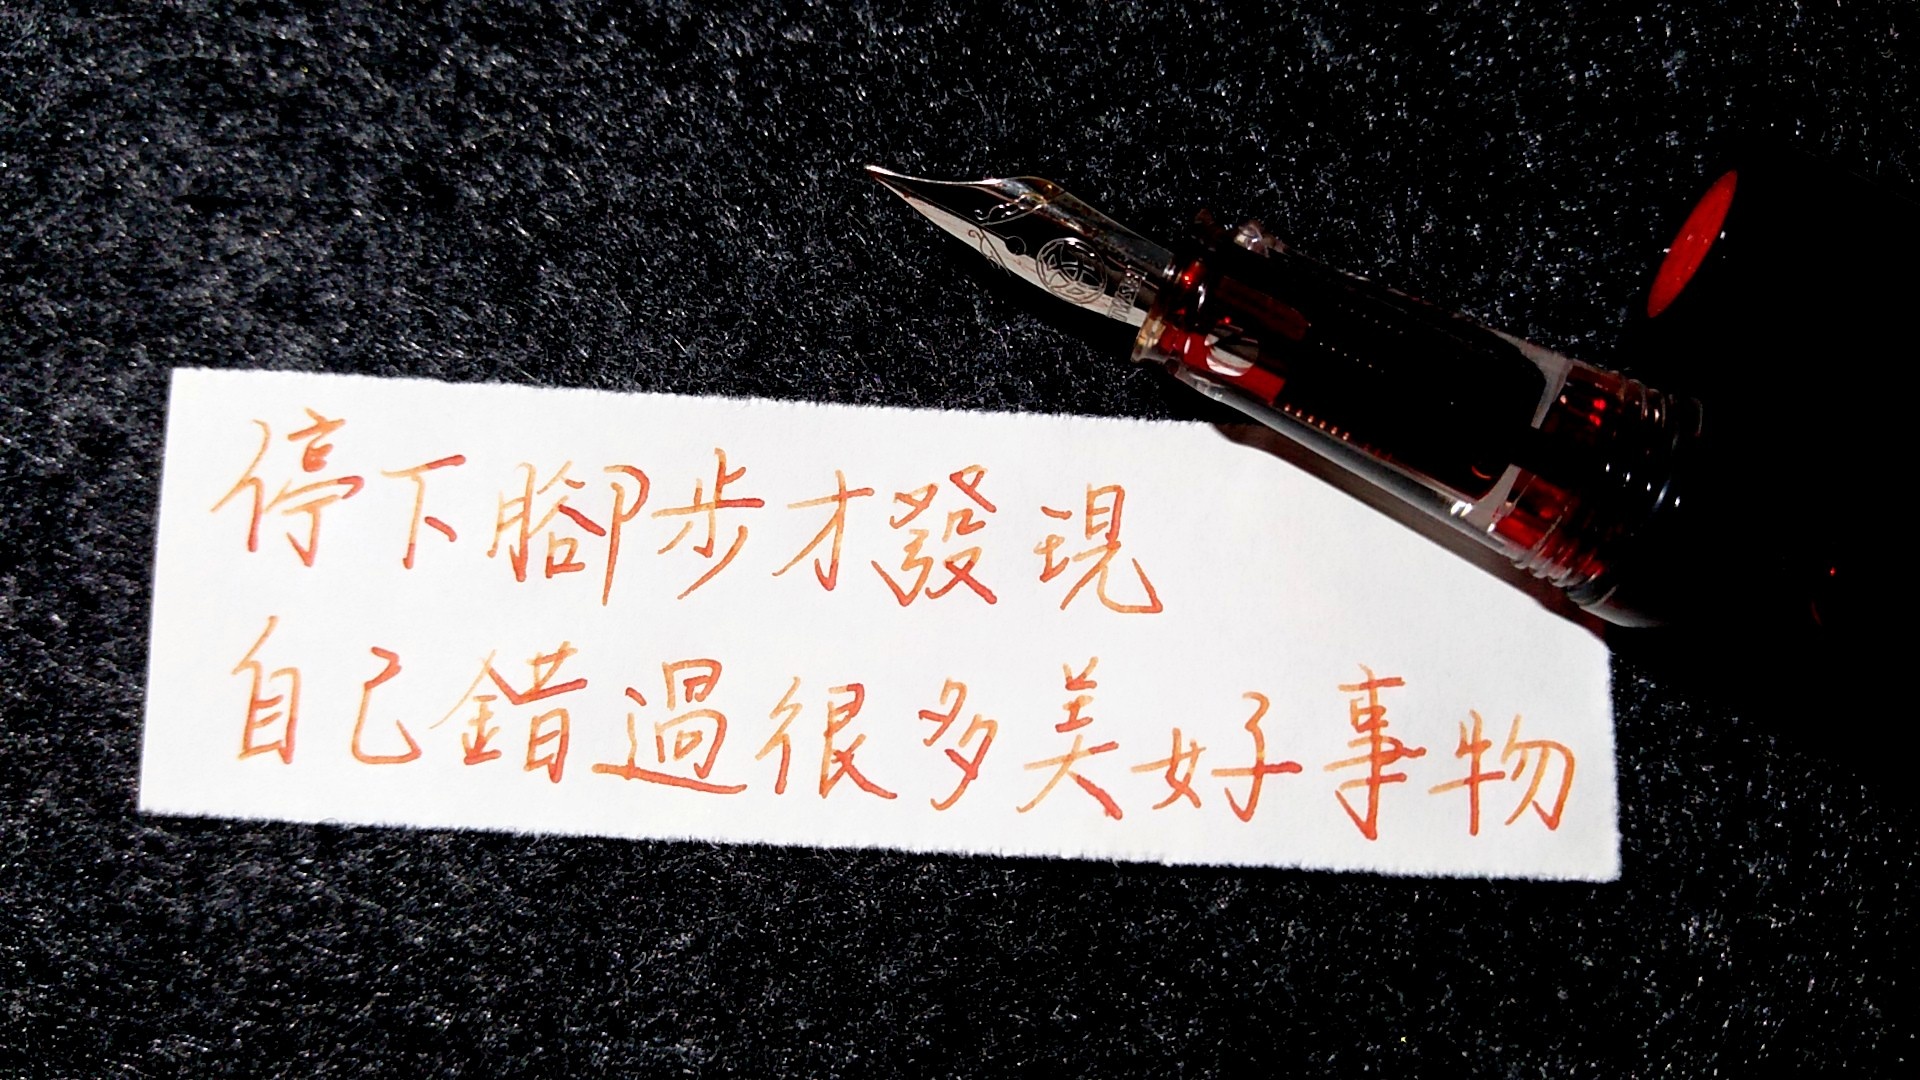 停下腳步才發現
自己錯過很多美好事物
TWSBI